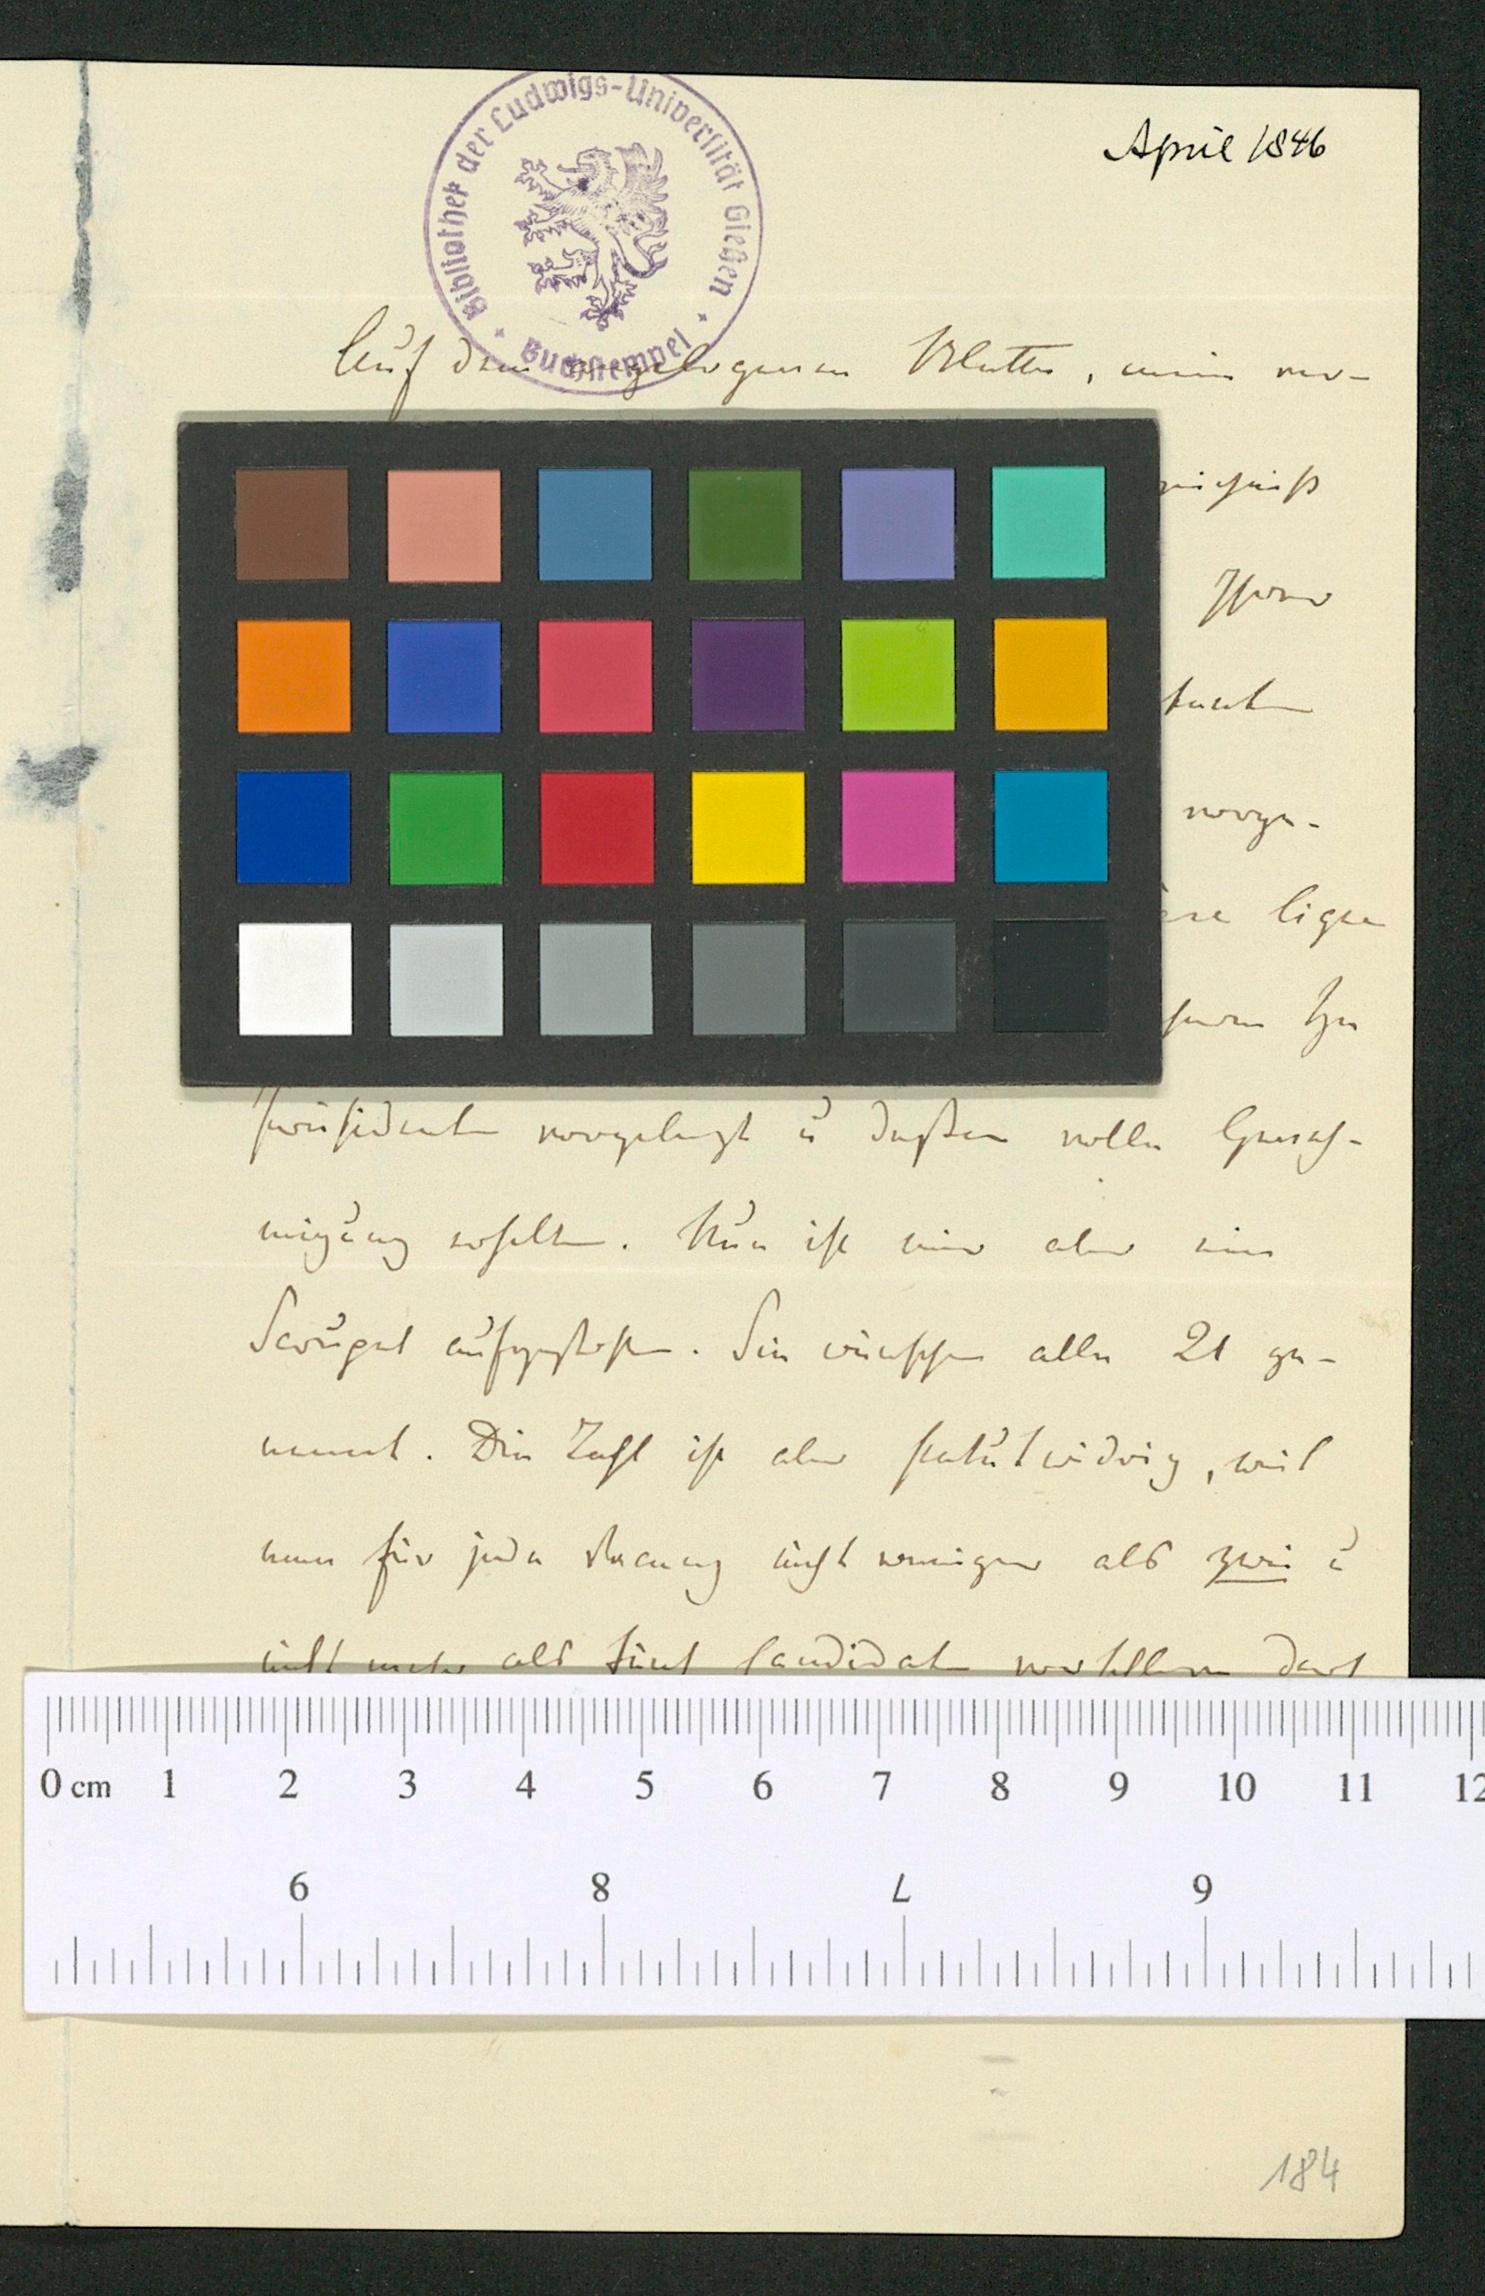 Bibliothek der Ludwigs-Universität Gießen
Buchstempel
April 1846
Auf dem angebogenen Blatte, mein ver-
zeichniß
Ihrer
vorge-
ligen
Präsidenten vorgelegt u dessen volle Geneh-
migung erhalten. Nun ist mir aber ein
Scrupel aufgestoßen. Sie wünschen alle 21 ge-
nannt. Die Zahl ist aber statutwidrig, weil
man für jede Vacanz nicht weniger als zwei u
nicht mehr als fünf Candidaten vorstellen darf
0 cm 1 2 3 4 5 6 7 8 9 10 11 12
6 8 7 9
184